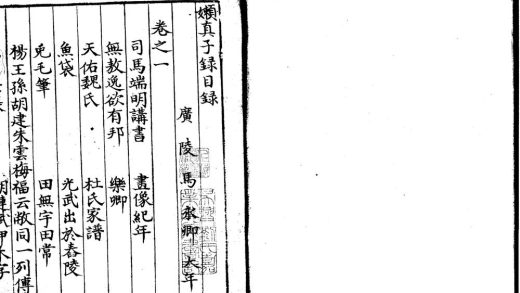 嬾真子録目録
廣陵馬永卿 大年
卷之一
司馬端明講書 畫像紀年
無敖逸欲有邦 樂卿
天佑魏氏 杜氏家譜
魚袋 光武出於舂陵
兎毛筆 田無宇田常
楊王孫胡建朱雲梅福云敞同一列傳